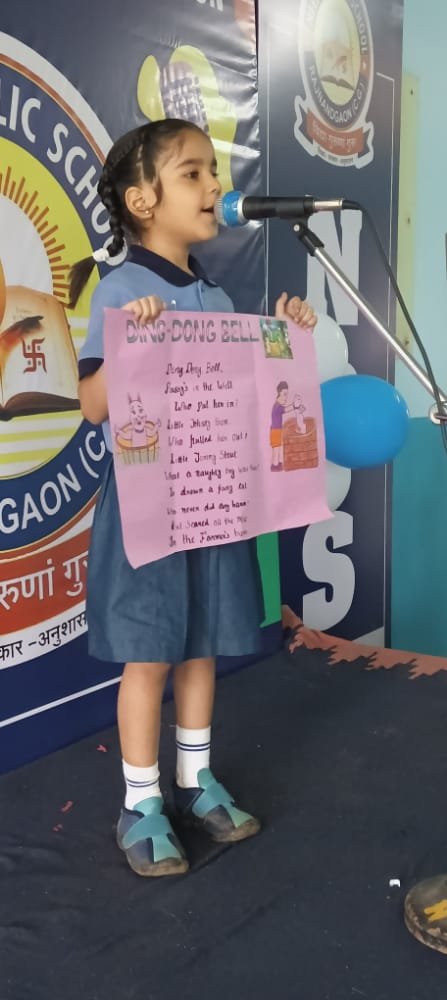 ON
LIC SCHOOL
GAON (C.G
रुणां गु
कार -अनुशास
SCHOOL
RAJNANDGAON (C.G.)
N
S
DING-DONG BELL
Ding Dong Bell,
Pussy's in the Well
Who Put her in?
Little Johnny
Who Pulled her Out?
Little Jimmy Stout
What a naughty boy was that
To drown a pussy cat
Who never did any harm
But Scared all the
In the Farmer's barn